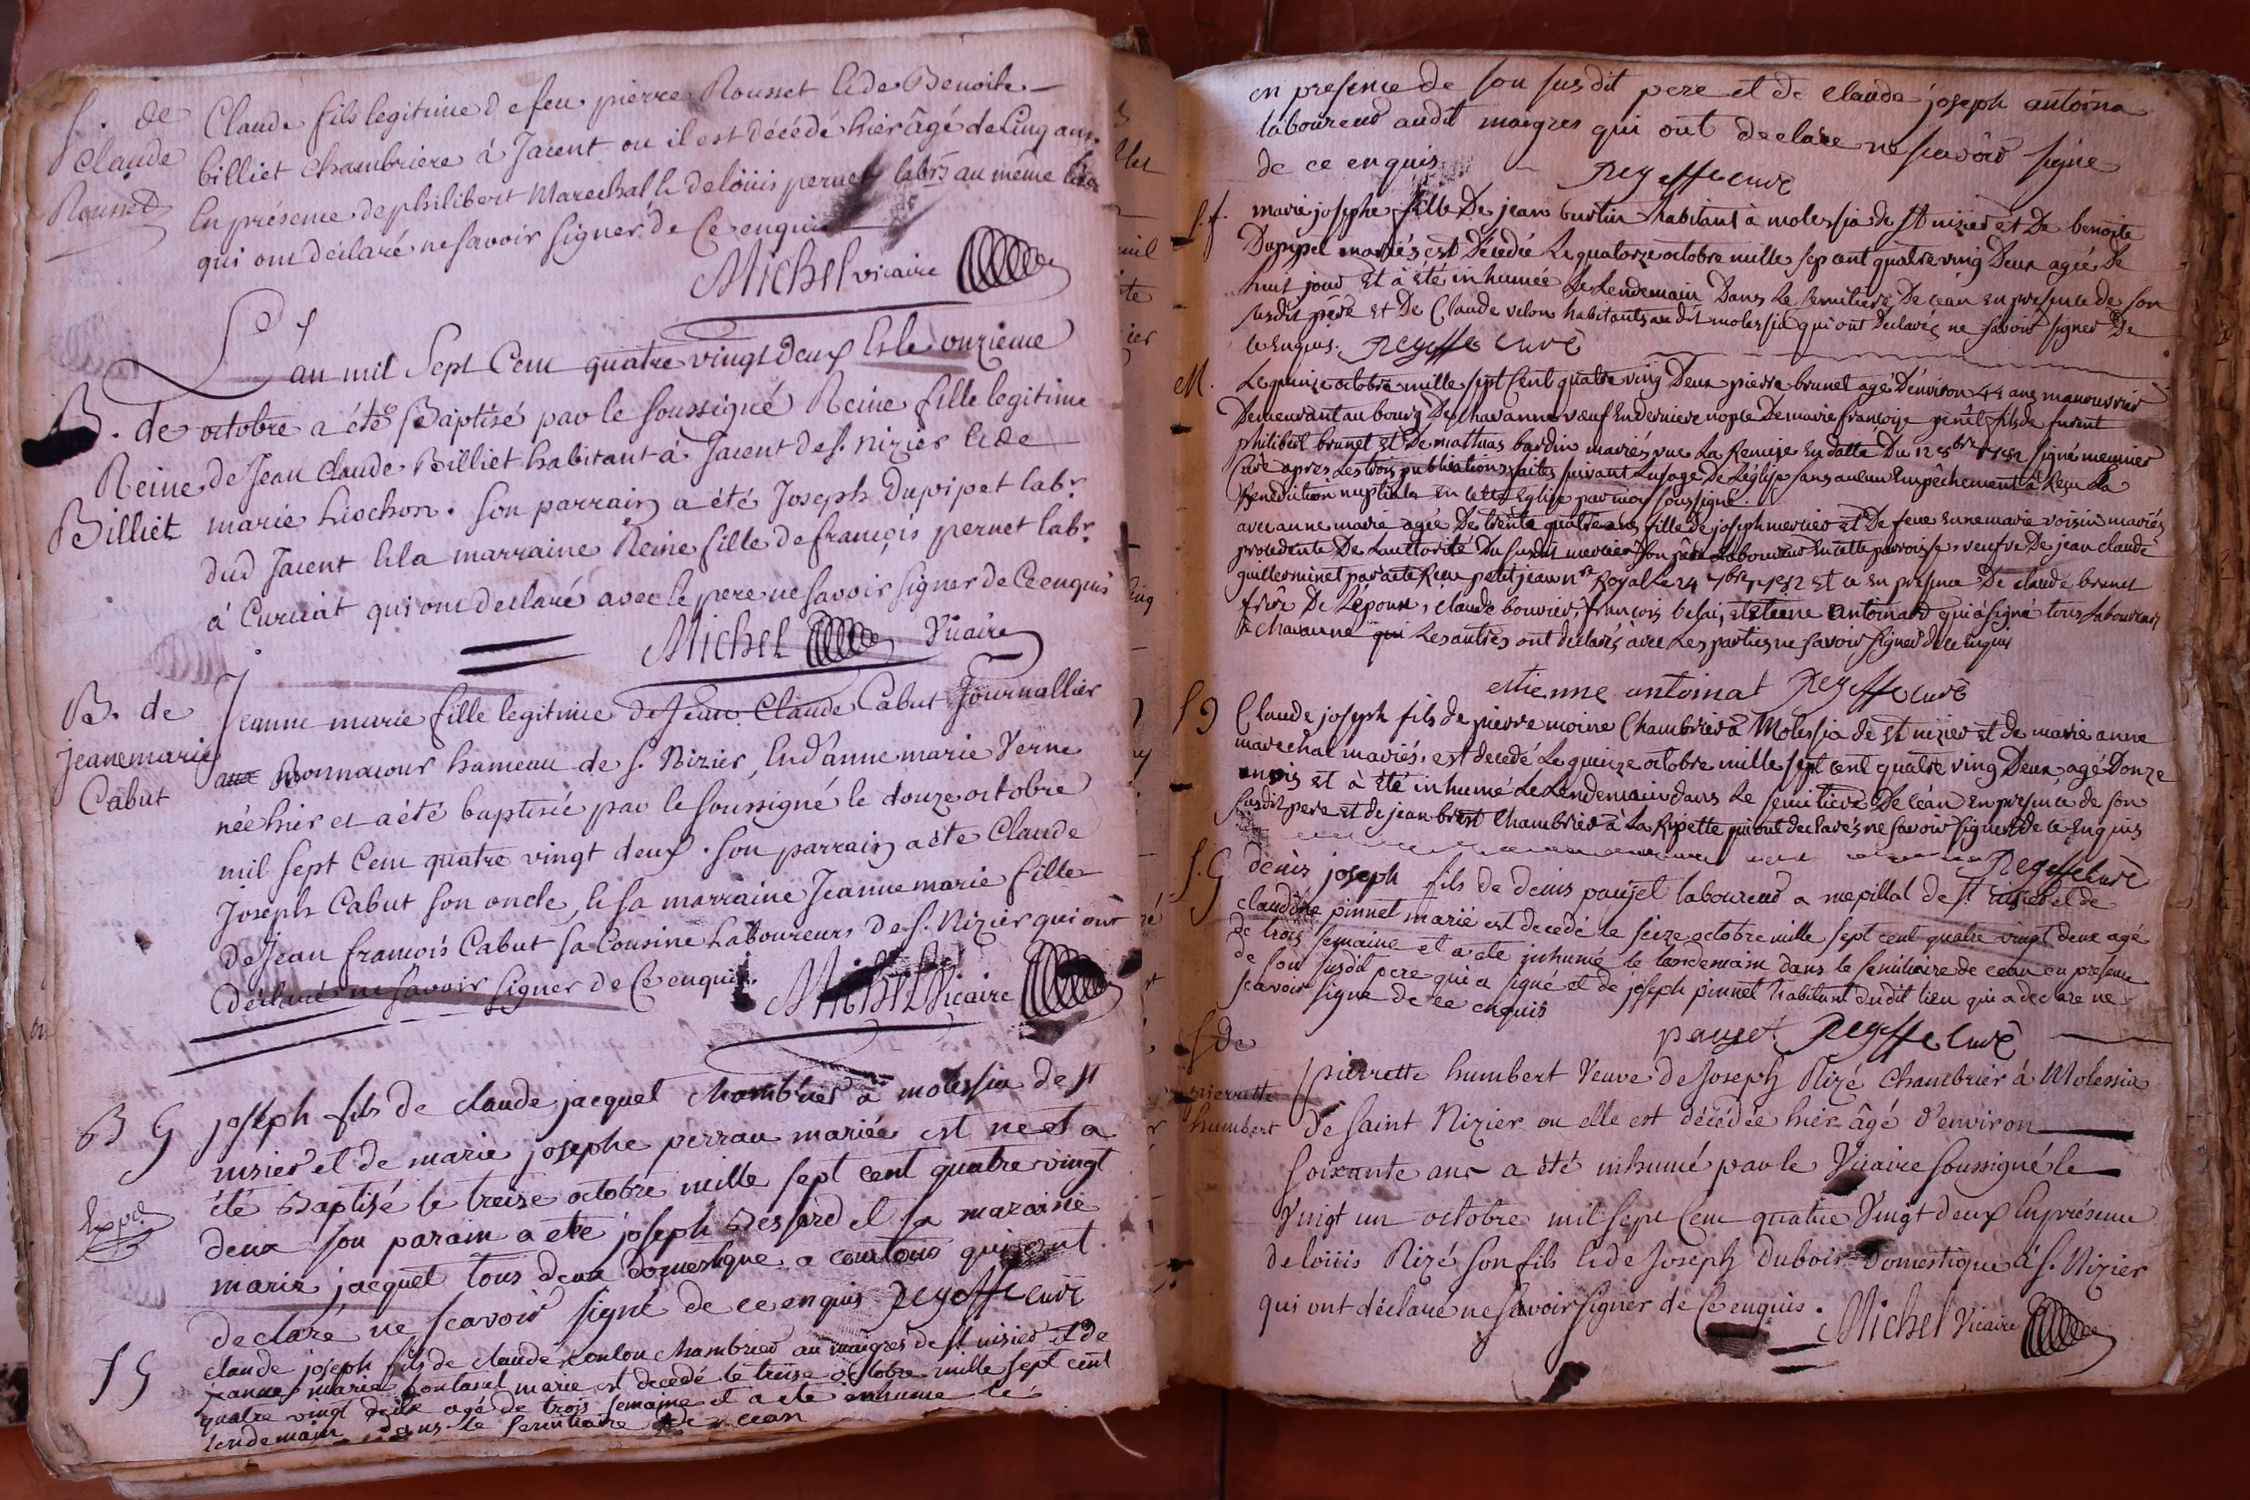 S. de
Claude
Rousset
Claude fils legitime de feu pierre Rousset & de Benoite
billiet chambriere à Jacent ou il est décédé hier âgé de Cinq ans.
En présence de philibert Marechal & de loüis pernet labrs au même lieu
qui ont déclaré ne savoir signer de Ce enquis
Michel vicaire
L'an mil Sept Cent quatre vingt deux & le onzieme
B. de
Reine
Billiet
octobre a été Baptisé par le soussigné Reine fille legitime
de Jean Claude Billiet habitant à Jacent de s. Nizier & de
marie hiochon. son parrain a été Joseph Dupipet labr
dud Jacent & la marraine Reine fille de françois pernet labr.
à Curciat qui ont déclaré avec le pere ne savoir signer de Ce enquis
Michel Vicaire
B. de
Jeanemarie
Cabut
Jeanne marie fille legitime de Jean Claude Cabut Journallier
Bonnacour hameau de S. Nizier, & d'anne marie Verne
née hier et a été baptisée par le soussigné le douze octobre
mil sept Cent quatre vingt deux. son parrain a été Claude
Joseph Cabut son oncle, & sa marraine Jeanne marie fille
de Jean françois Cabut sa Cousine Laboureurs de S. Nizier qui ont
déclaré ne savoir signer de Ce enquis.
Michel Vicaire
B G
Expd
joseph fils de claude jacquet chambrier a molessia de st
nisier et de marie josephe perrau mariée est ne et a
été Baptisé le treise octobre mille sept cent quatre vingt
deux son parain a ete joseph et sa maraine
marie jacquet tous deux domestique a qui ont
declaré ne scavoir signé de ce enquis Regeffe curé
S G
claude joseph fils de claude coulon chambrier au maigres de st nisier et de
jeanne marie marie est decedé le treise octobre mille sept cent
quatre vingt deux agé de trois semaine et a ete inhumé le
lendemain dans le semitiaire de cean
en presence de son susdit pere et de claude joseph antoina
laboureur audit maigres qui ont declare ne scavoir signe
de ce enquis Regeffe curé
S. f.
marie josephe fille De jean burtin habitant à molessia de st nizier et De benoite
Dupipet mariés est Décedée Le quatorze octobre mille sep cent quatre ving Deux agée De
huit jour et à été inhumée Le Lendemain Dans Le semitiere De céan en presence de son
susdit père et De Claude velon habitants au dit molessia qui ont Declarés ne savoir signer De
ce enquis. Regeffe curé
M.
Le quinze octobre mille sept Cent quatre ving Deux pierre brunet agé D'environ 44 ans manouvrier
Demeurant au bourg De chavanne vœuf En derniere nopce De marie françoise fils de furent
philibert brunet et De mathias bardin mariés vue La Remise En datte Du 12 8bre 1782 signé meunier
Curé apres Les trois publications faites suivant L'usage De L'église sans aucun Empêchement à Reçu La
Benediction nuptiale en cette Eglise par moy soussigné.
avec anne marie agée De trente quatre ans fille de joseph mercier et De feue Ennemarie voisin mariés
procedente De L'authorité Du susdit mercier son père Laboureur En cette parroisse, veufve De jean claude
guilleminet par acte Reçu petitjean nre Royal Le 24 7bre 1782 Et ce en presence De claude brunet
frère De L'époux, claude bouvier, françois belai, et etiene antoinard qui à signé tous Laboureurs
à chavanne qui Les autres ont declarés avec Les parties ne savoir signer de ce enquis
estienne antoinat Regeffe curé
S G
Claude joseph fils de pierre moine Chambrier à Molessia de st nizier et de marie anne
marechal mariés, est decedé Le quinze octobre mille sept cent quatre ving Deux agé D'onze
mois et à été inhumé Le Lendemain dans Le semitiere De céan en presence de son
susdit pere et de jean brest Chambrier à La Ripette qui ont declarés ne savoir signer de ce enquis
Regeffe curé
S. G
denis joseph fils de denis paujet laboureur a mepillat de st nisier et de
claudine pinnet marié est decedé le seize octobre mille sept cent quatre vingt deux agé
de trois semaine et a ete inhumé le landemain dans le semitiaire de cean en presence
de son susdit pere qui a signé et de joseph pinnet habitant dudit lieu qui a declare ne
scavoir signe de ce enquis
paujet Regeffe curé
S de
pierrette
humbert
pierrette humbert Veuve de Joseph Rizé chambrier à Molessia
de saint Nizier ou elle est décédée hier âgé d'environ
soixante ans a été inhumé par le Vicaire soussigné le
Vingt un octobre mil sept Cent quatre Vingt deux En présence
de loüis Rizé son fils & de Joseph dubois Domestique à S. Nizier
qui ont déclaré ne savoir signer de Ce enquis. Michel Vicaire